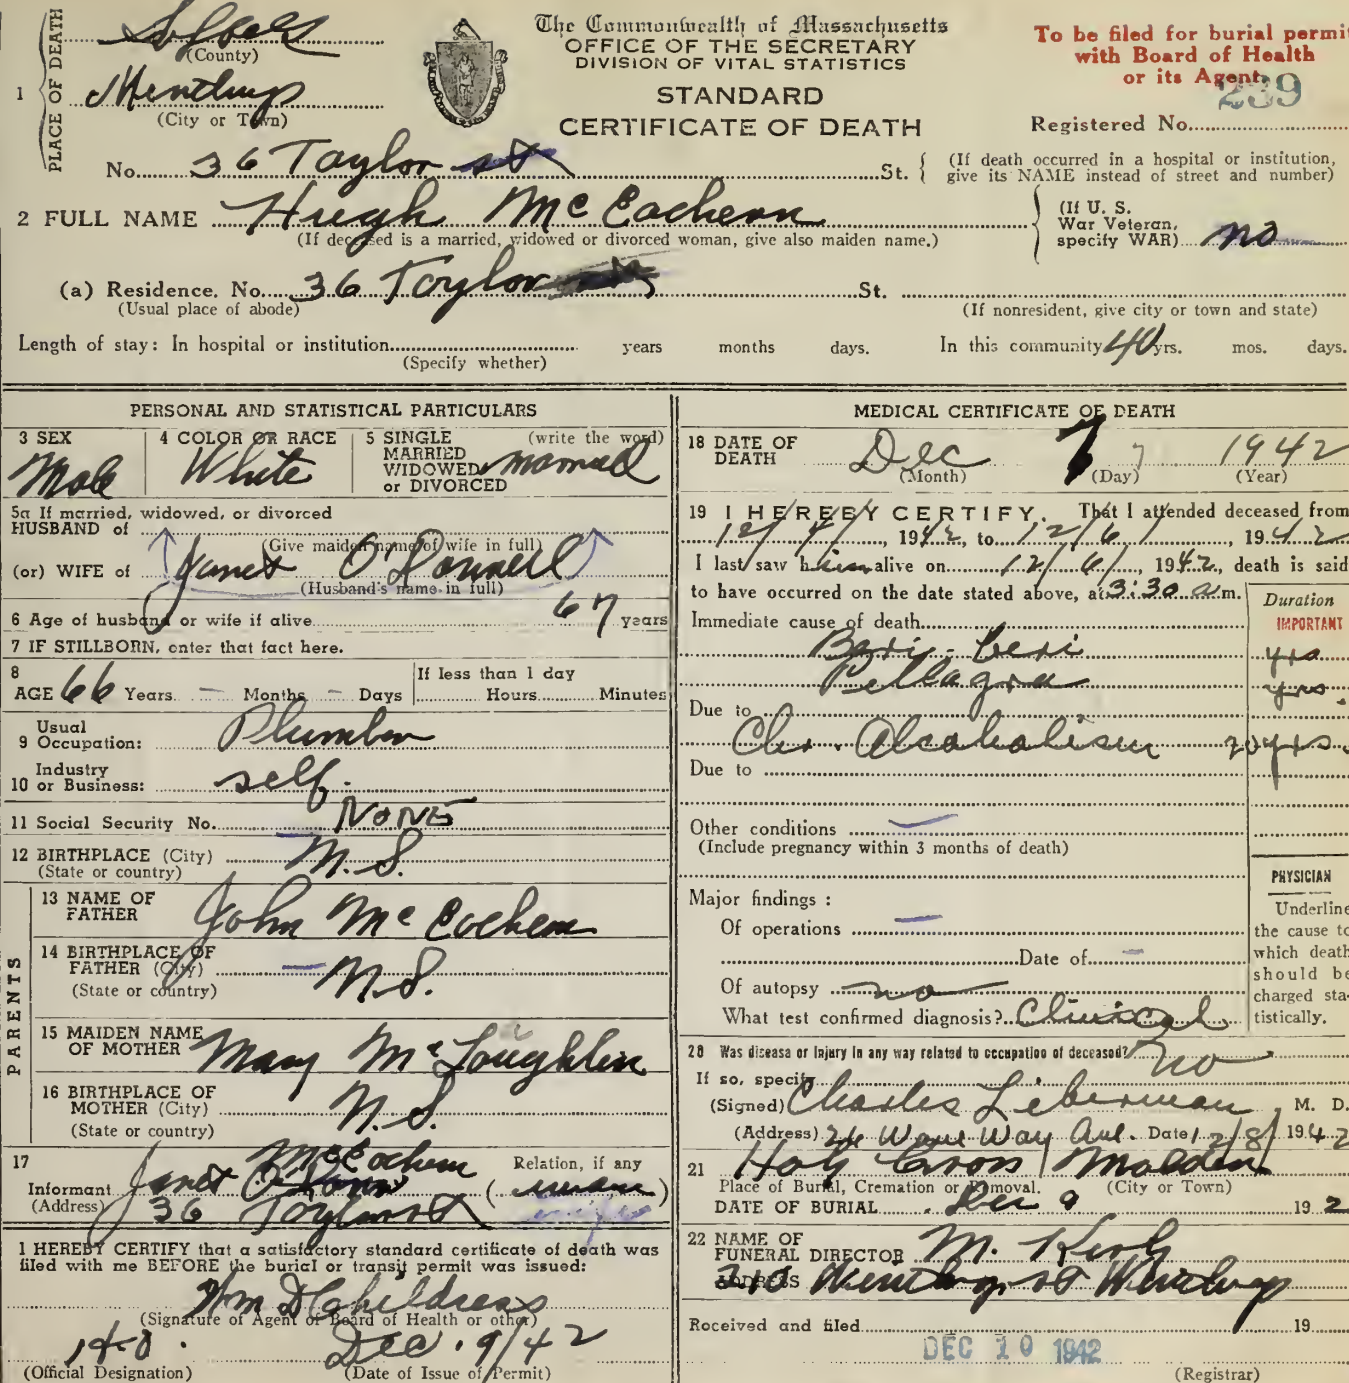 The Commonwealth of Massachusetts
OFFICE OF THE SECRETARY
DIVISION OF VITAL STATISTICS
STANDARD
CERTIFICATE OF DEATH
To be filed for burial permit
with Board of Health
or its Agent.
239
Registered No.
1 PLACE OF DEATH
Suffolk
(County)
Winthrop
(City or Town)
No. 36 Taylor st St. { (If death occurred in a hospital or institution, give its NAME instead of street and number)
2 FULL NAME Hugh McEachern
(If deceased is a married, widowed or divorced woman, give also maiden name.)
(If U. S. War Veteran, specify WAR) no
(a) Residence. No. 36 Taylor St.
(Usual place of abode)
(If nonresident, give city or town and state)
Length of stay: In hospital or institution years months days. In this community 40 yrs. mos. days.
(Specify whether)
PERSONAL AND STATISTICAL PARTICULARS
3 SEX
Male
4 COLOR OR RACE
White
5 SINGLE MARRIED WIDOWED or DIVORCED (write the word)
married
5a If married, widowed, or divorced
HUSBAND of
(Give maiden name of wife in full)
(or) WIFE of Janet O'Donnell
(Husband's name in full)
6 Age of husband or wife if alive 67 years
7 IF STILLBORN, enter that fact here.
8
AGE 66 Years - Months - Days
If less than 1 day
Hours Minutes
9 Usual Occupation: Plumber
10 Industry or Business: self
11 Social Security No. NONE
12 BIRTHPLACE (City)
(State or country) N.S.
PARENTS
13 NAME OF FATHER John McEachern
14 BIRTHPLACE OF FATHER (City) —
(State or country) N.S.
15 MAIDEN NAME OF MOTHER Mary McLoughlin
16 BIRTHPLACE OF MOTHER (City)
(State or country) N.S.
17
McEachern
Informant Janet Relation, if any
(Address) 36 Taylor st
I HEREBY CERTIFY that a satisfactory standard certificate of death was
filed with me BEFORE the burial or transit permit was issued:
Wm D Childress
(Signature of Agent of Board of Health or other)
H.O. Dec. 9/42
(Official Designation) (Date of Issue of Permit)
MEDICAL CERTIFICATE OF DEATH
18 DATE OF DEATH Dec 7 7 1942
(Month) (Day) (Year)
19 I HEREBY CERTIFY, That I attended deceased from
12/4/, 1942, to 12/6/, 1942
I last saw him alive on 12/6/, 1942, death is said
to have occurred on the date stated above, at 3:30 a.m.
Duration
IMPORTANT
Immediate cause of death
Beri-beri yrs
Pellagra yrs.
Due to
Chr. Alcoholism 20 yrs.
Due to
Other conditions —
(Include pregnancy within 3 months of death)
Major findings :
Of operations —
Date of -
Of autopsy no
What test confirmed diagnosis? Clinical
PHYSICIAN
Underline
the cause to
which death
should be
charged sta-
tistically.
20 Was disease or injury in any way related to occupation of deceased? no
If so, specify
(Signed) Charles Liberman, M. D.
(Address) 26 Wave Way Ave. Date 12/8/ 1942
21 Holy Cross Malden
Place of Burial, Cremation or Removal. (City or Town)
DATE OF BURIAL Dec 9 19 2
22 NAME OF FUNERAL DIRECTOR M. Kirby
ADDRESS 210 Winthrop st Winthrop
Received and filed 19
DEC 10 1942
(Registrar)